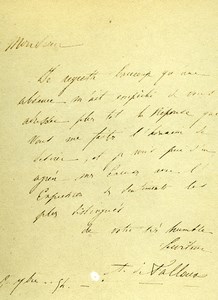 Monsieur
Je regrette beaucoup qu'une
absence m'ait empêché de vous
adresser plus tôt la réponse que
Vous me faites l'honneur de
et je vous prie d'en
agréer mes avec
l'Expression de sentiments les
plus distingués
de votre très humble
Serviteur
A. de Falloux